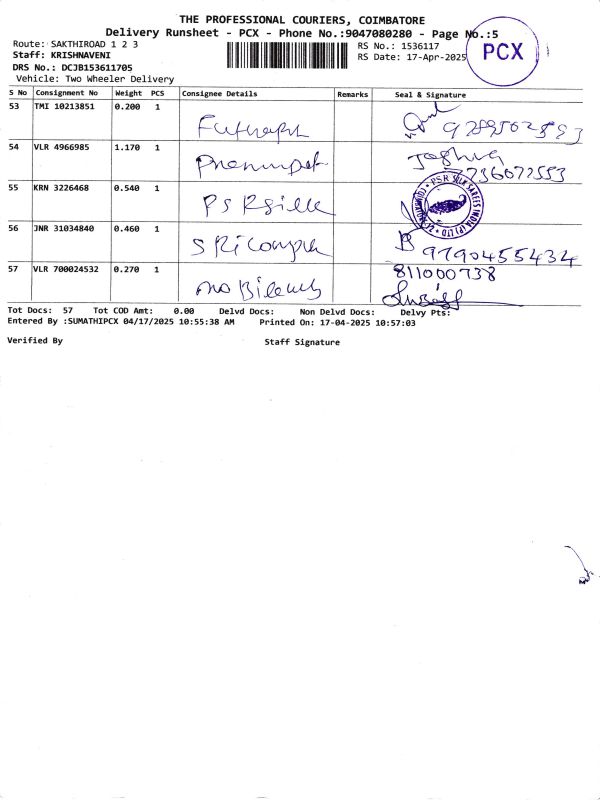 THE PROFESSIONAL COURIERS, COIMBATORE
Delivery Runsheet - PCX - Phone No.:9047080280 - Page No.:5
Route: SAKTHIROAD 1 2 3
Staff: KRISHNAVENI
DRS No.: DCJB153611705
Vehicle: Two Wheeler Delivery
RS No.: 1536117
RS Date: 17-Apr-2025
PCX
S No Consignment No Weight PCS Consignee Details Remarks Seal & Signature
53 TMI 10213851 0.200 1
54 VLR 4966985 1.170 1
55 KRN 3226468 0.540 1
56 JNR 31034840 0.460 1
9790455434
57 VLR 700024532 0.270 1
811000738
Tot Docs: 57 Tot COD Amt: 0.00 Delvd Docs: Non Delvd Docs: Delvy Pts:
Entered By :SUMATHIPCX 04/17/2025 10:55:38 AM Printed On: 17-04-2025 10:57:03
Verified By Staff Signature